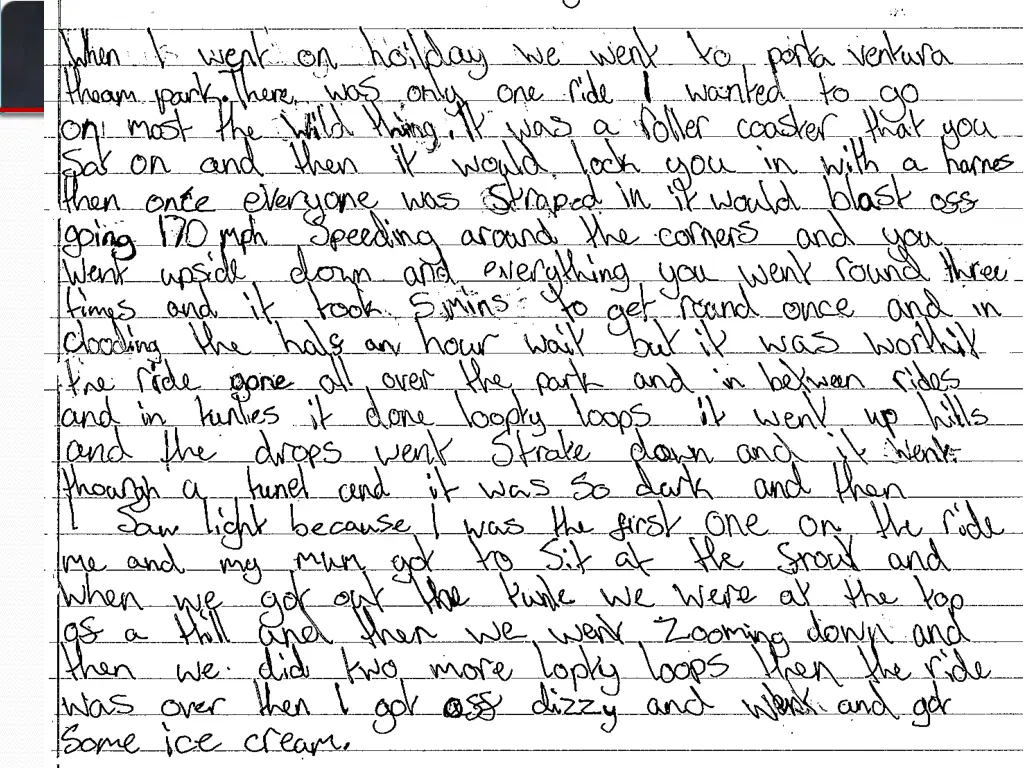 When I went on hoilday we went to porta ventura
theam park. There was only one ride I wanted to go
on most the Wild thing. It was a roller coaster that you
Sat on and then it would lock you in with a harnes
then once everyone was Straped in it would blast off
going 170 mph Speeding around the corners and you
went upside down and everything you went round three
times and it took 5 mins to get round once and in
clooding the half an hour wait but it was worthit
the ride gone all over the park and in between rides
and in tunlies it done loopty loops it went up hills
and the drops went Strate down and it went
thourgh a tunel and it was So dark and then
I Saw light because I was the first one on the ride
me and my mum got to Sit at the frout and
when we got out the tunle we were at the top
of a Hill and then we went Zooming down and
then we did two more lopty loops then the ride
was over then I got off dizzy and went and got
Some ice cream.